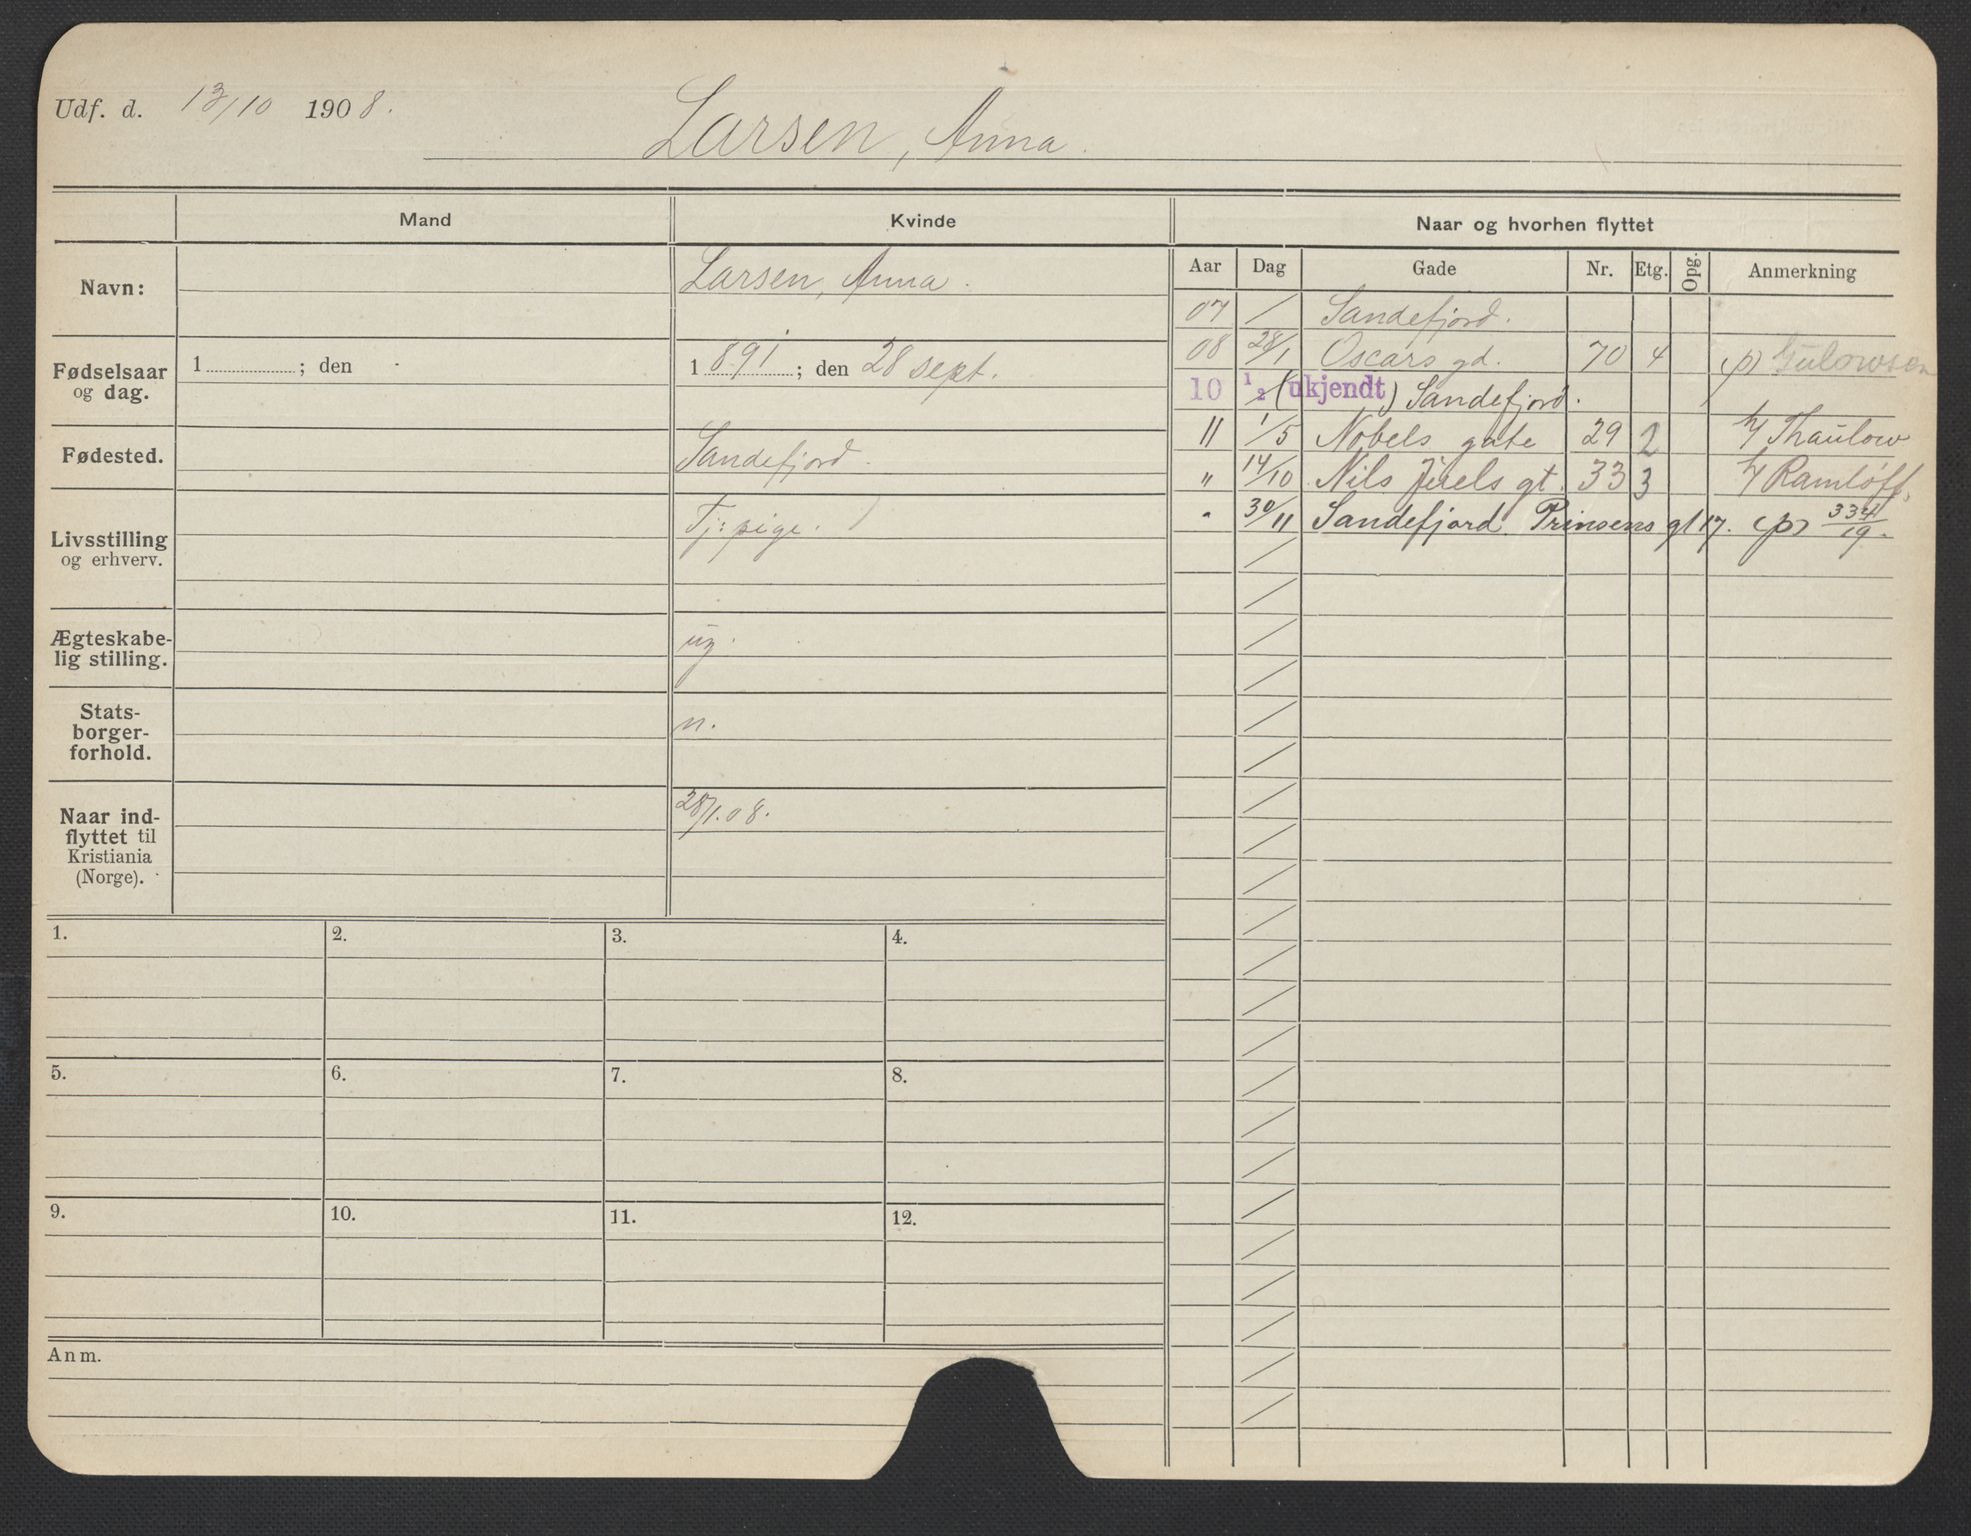 Udf. d. 13/10 1908.
Larsen, Anna.
Mand Kvinde Naar og hvorhen flyttet
Aar Dag Gade Nr. Etg. Opg. Anmerkning
Navn: Larsen, Anna.
Fødselsaar og dag. 1 ; den 1891 ; den 28 sept.
Fødested. Sandefjord.
Livsstilling og erhverv. Tj: pige.
Ægteskabe-
lig stilling. ug.
Stats-
borger-
forhold. n.
Naar ind-
flyttet til
Kristiania
(Norge). 28/1.08.
07 / Sandefjord.
08 28/1 Oscars gd. 70 4 (p) Gulowsen
10 1/2 (ukjendt) Sandefjord.
11 1/5 Nobels gate 29 2 h/ Thaulow
" 14/10 Nils Juels gt. 33 3 h/ Ramløff.
" 30/11 Sandefjord. Prinsens gt 17. (p) 334/19.
1. 2. 3. 4.
5. 6. 7. 8.
9. 10. 11. 12.
Anm.